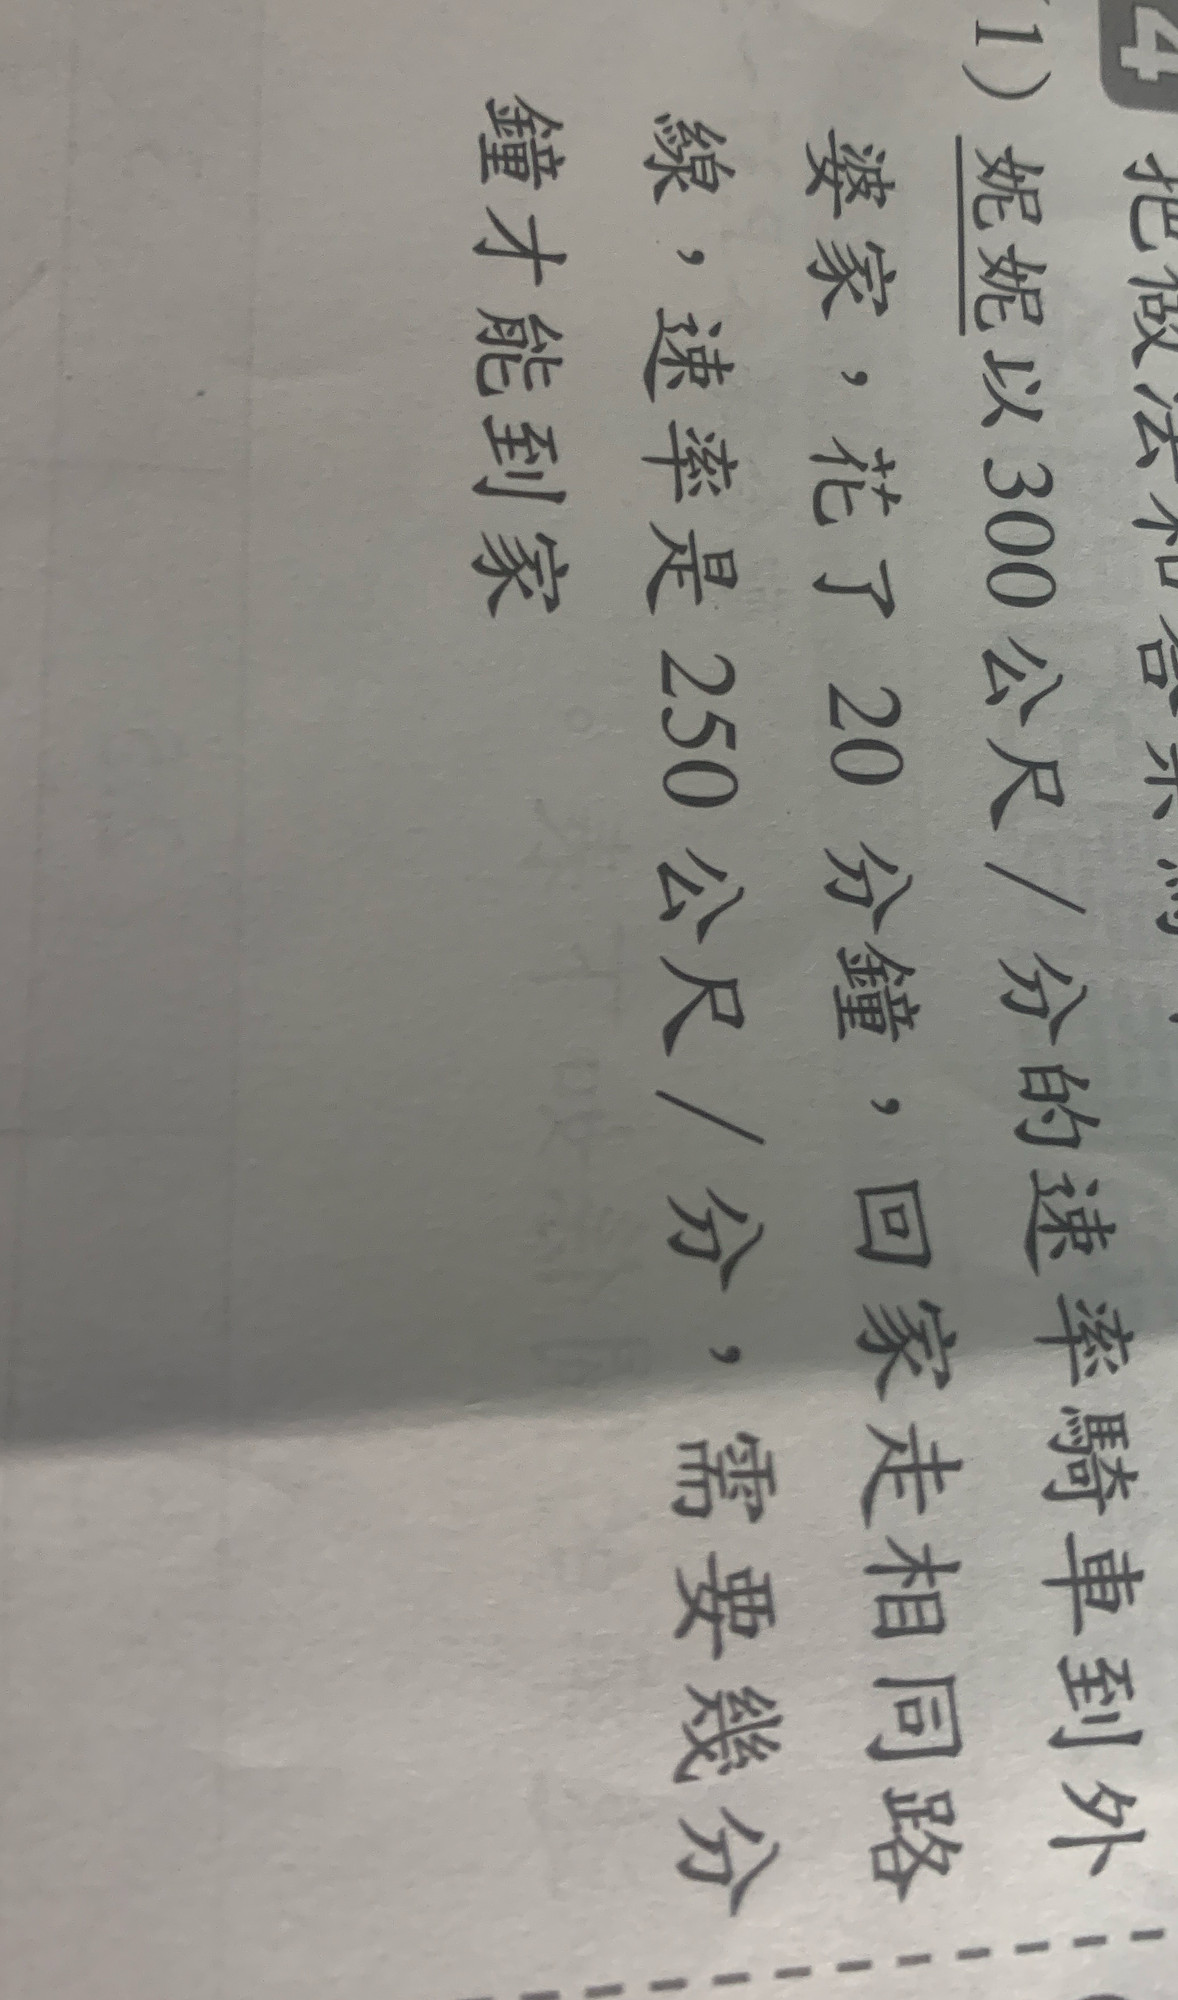 4 把做法和答案
(1) 妮妮以300公尺/分的速率騎車到外
婆家，花了20分鐘，回家走相同路
線，速率是250公尺/分，需要幾分
鐘才能到家